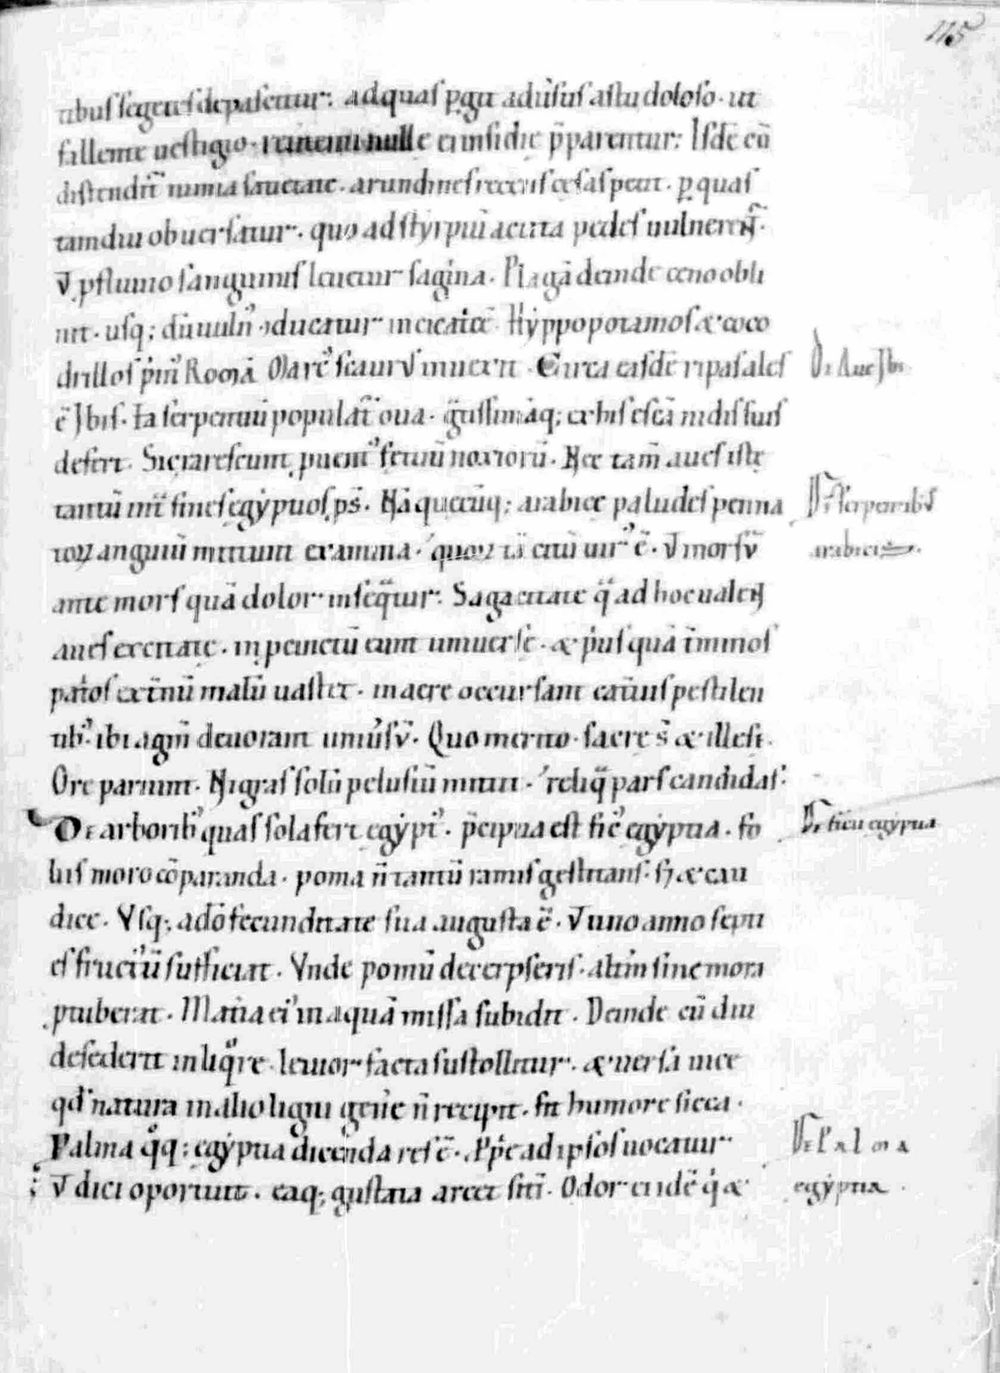 115
tibus segetes depascitur: ad quas p̱git aduersus astu doloso. ut
fallente uestigio. reuertenti nulle ei insidie p̄parentur: Isdē cū
distendit̄ nimia satietate. arundines recens cęsas petit. ꝑ quas
tamdiu obuersatur. quo ad styrpiū acuta pedes uulnerent̄.
Vt ꝓfluuio sanguinis leuetur sagina. Plagā deinde ceno obli
nit. usq; dū uuln᾽ ducatur in cicatricē. Hyppopotamos & coco
drillos p̓m᾽ Romā Marc᾽ scaurus inuexit. Circa easdē ripas ales
ē Ibis. Ea serpentiū populat̄ oua. gratissimāq; ex his escā nidis suis
defert. Sic rarescunt ꝓuent᾽ fetuū noxiorū. Nec tam̄ aues istę
tantū int̄ fines ęgẏptios ꝓs̄. Nā quecūq; arabicę paludes penna
toꝝ anguiū mittunt examina. quoꝝ tā citū uir᾽ ē. Vt morsū
ante mors quā dolor insequatur. Sagacitate q̄ ad hoc ualent
aues excitatę. in ꝓcinctū eunt uniuersę. & p̓us quā t̄minos
patrios ext̄nū malū uastet. in aere occursant cateruis pestilen
tib᾽. ibi agm̄ deuorant uniuersū. Quo merito sacre s̄ & illesę.
Ore pariunt. Nigras solū pelusiū mittit. reliq̄ pars candidas.
De arborib᾽ quas sola fert egẏpt᾽. p̄cipua est fic᾽ egẏptia. fo
liis moro cōparanda. poma n̄ tantū ramis gestitans. sꝫ & cau
dice. Vsq; adō fecunditate sua angusta ē. Vno anno septi
es fructū sufficiat. Vnde pomū decerpseris. alterum sine mora
ꝓtuberat. Materia ei᾽ in aquā missa subidit. Deinde cū diu
desederit in liquore. leuior facta sustollitur. & uersa uice
qđ natura in alio ligni genere n̄ recipit. fit humore sicca.
Palma q̊q; egẏptia dicenda res ē. Ꝓprie adipsos uocatur
Vt dici oportuit. eaq; gustata arcet sitī. Odor ei idē q̓ &
De Aue Ibi
De serpentibus
arabicis
De ficu egẏptia
De Palma
egẏptia.